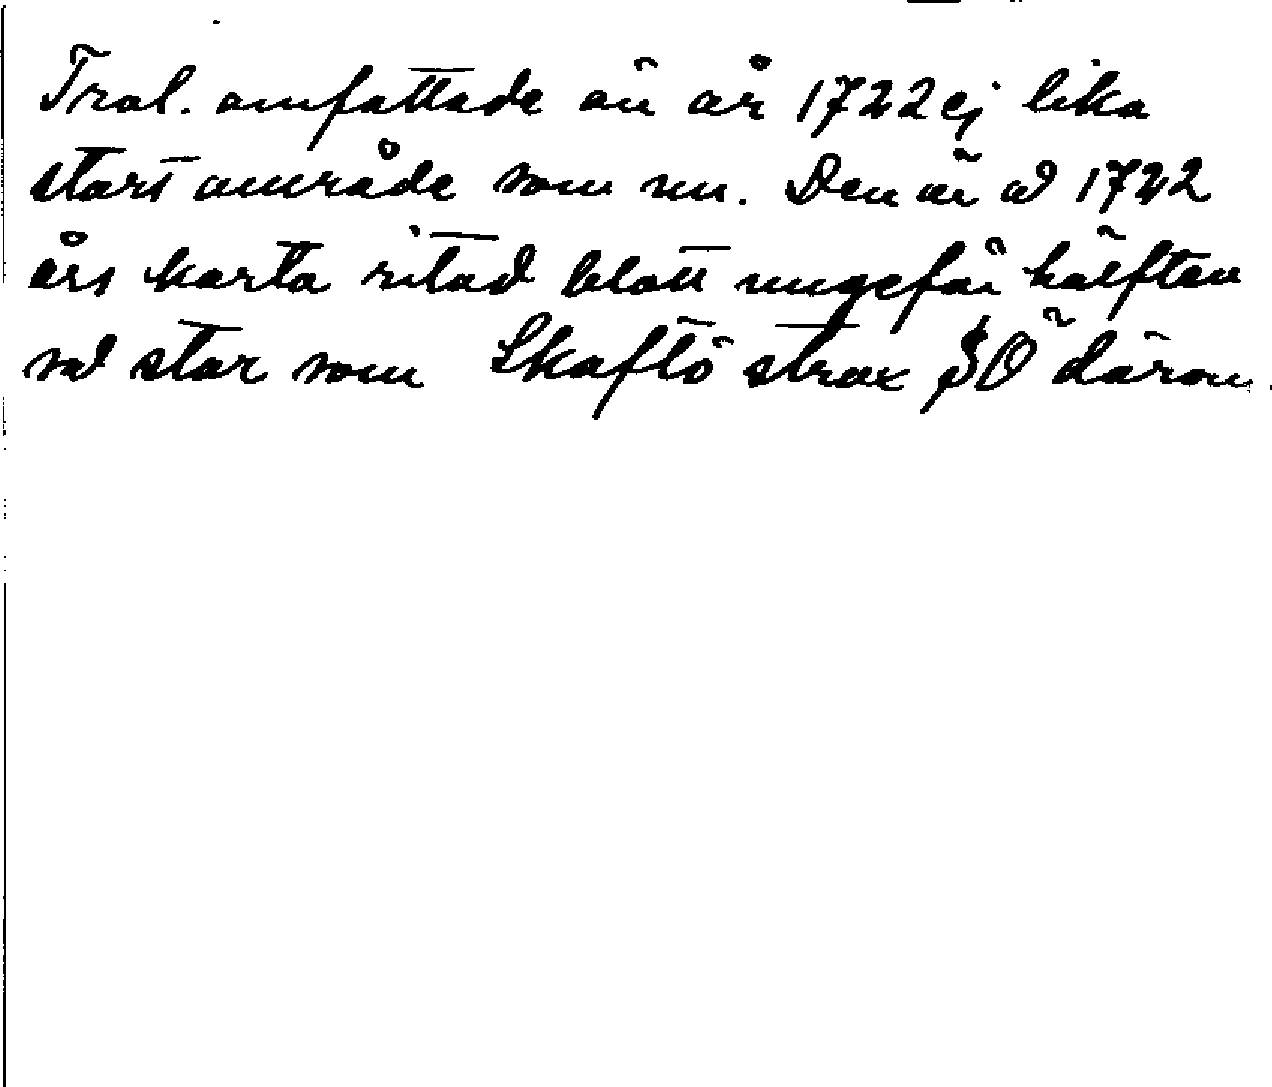 Trol. omfattade ön år 1722 ej lika
stort område som nu. Den är å 1722
års karta ritad blott ungefär hälften
så stor som Skaftö strax SO därom.